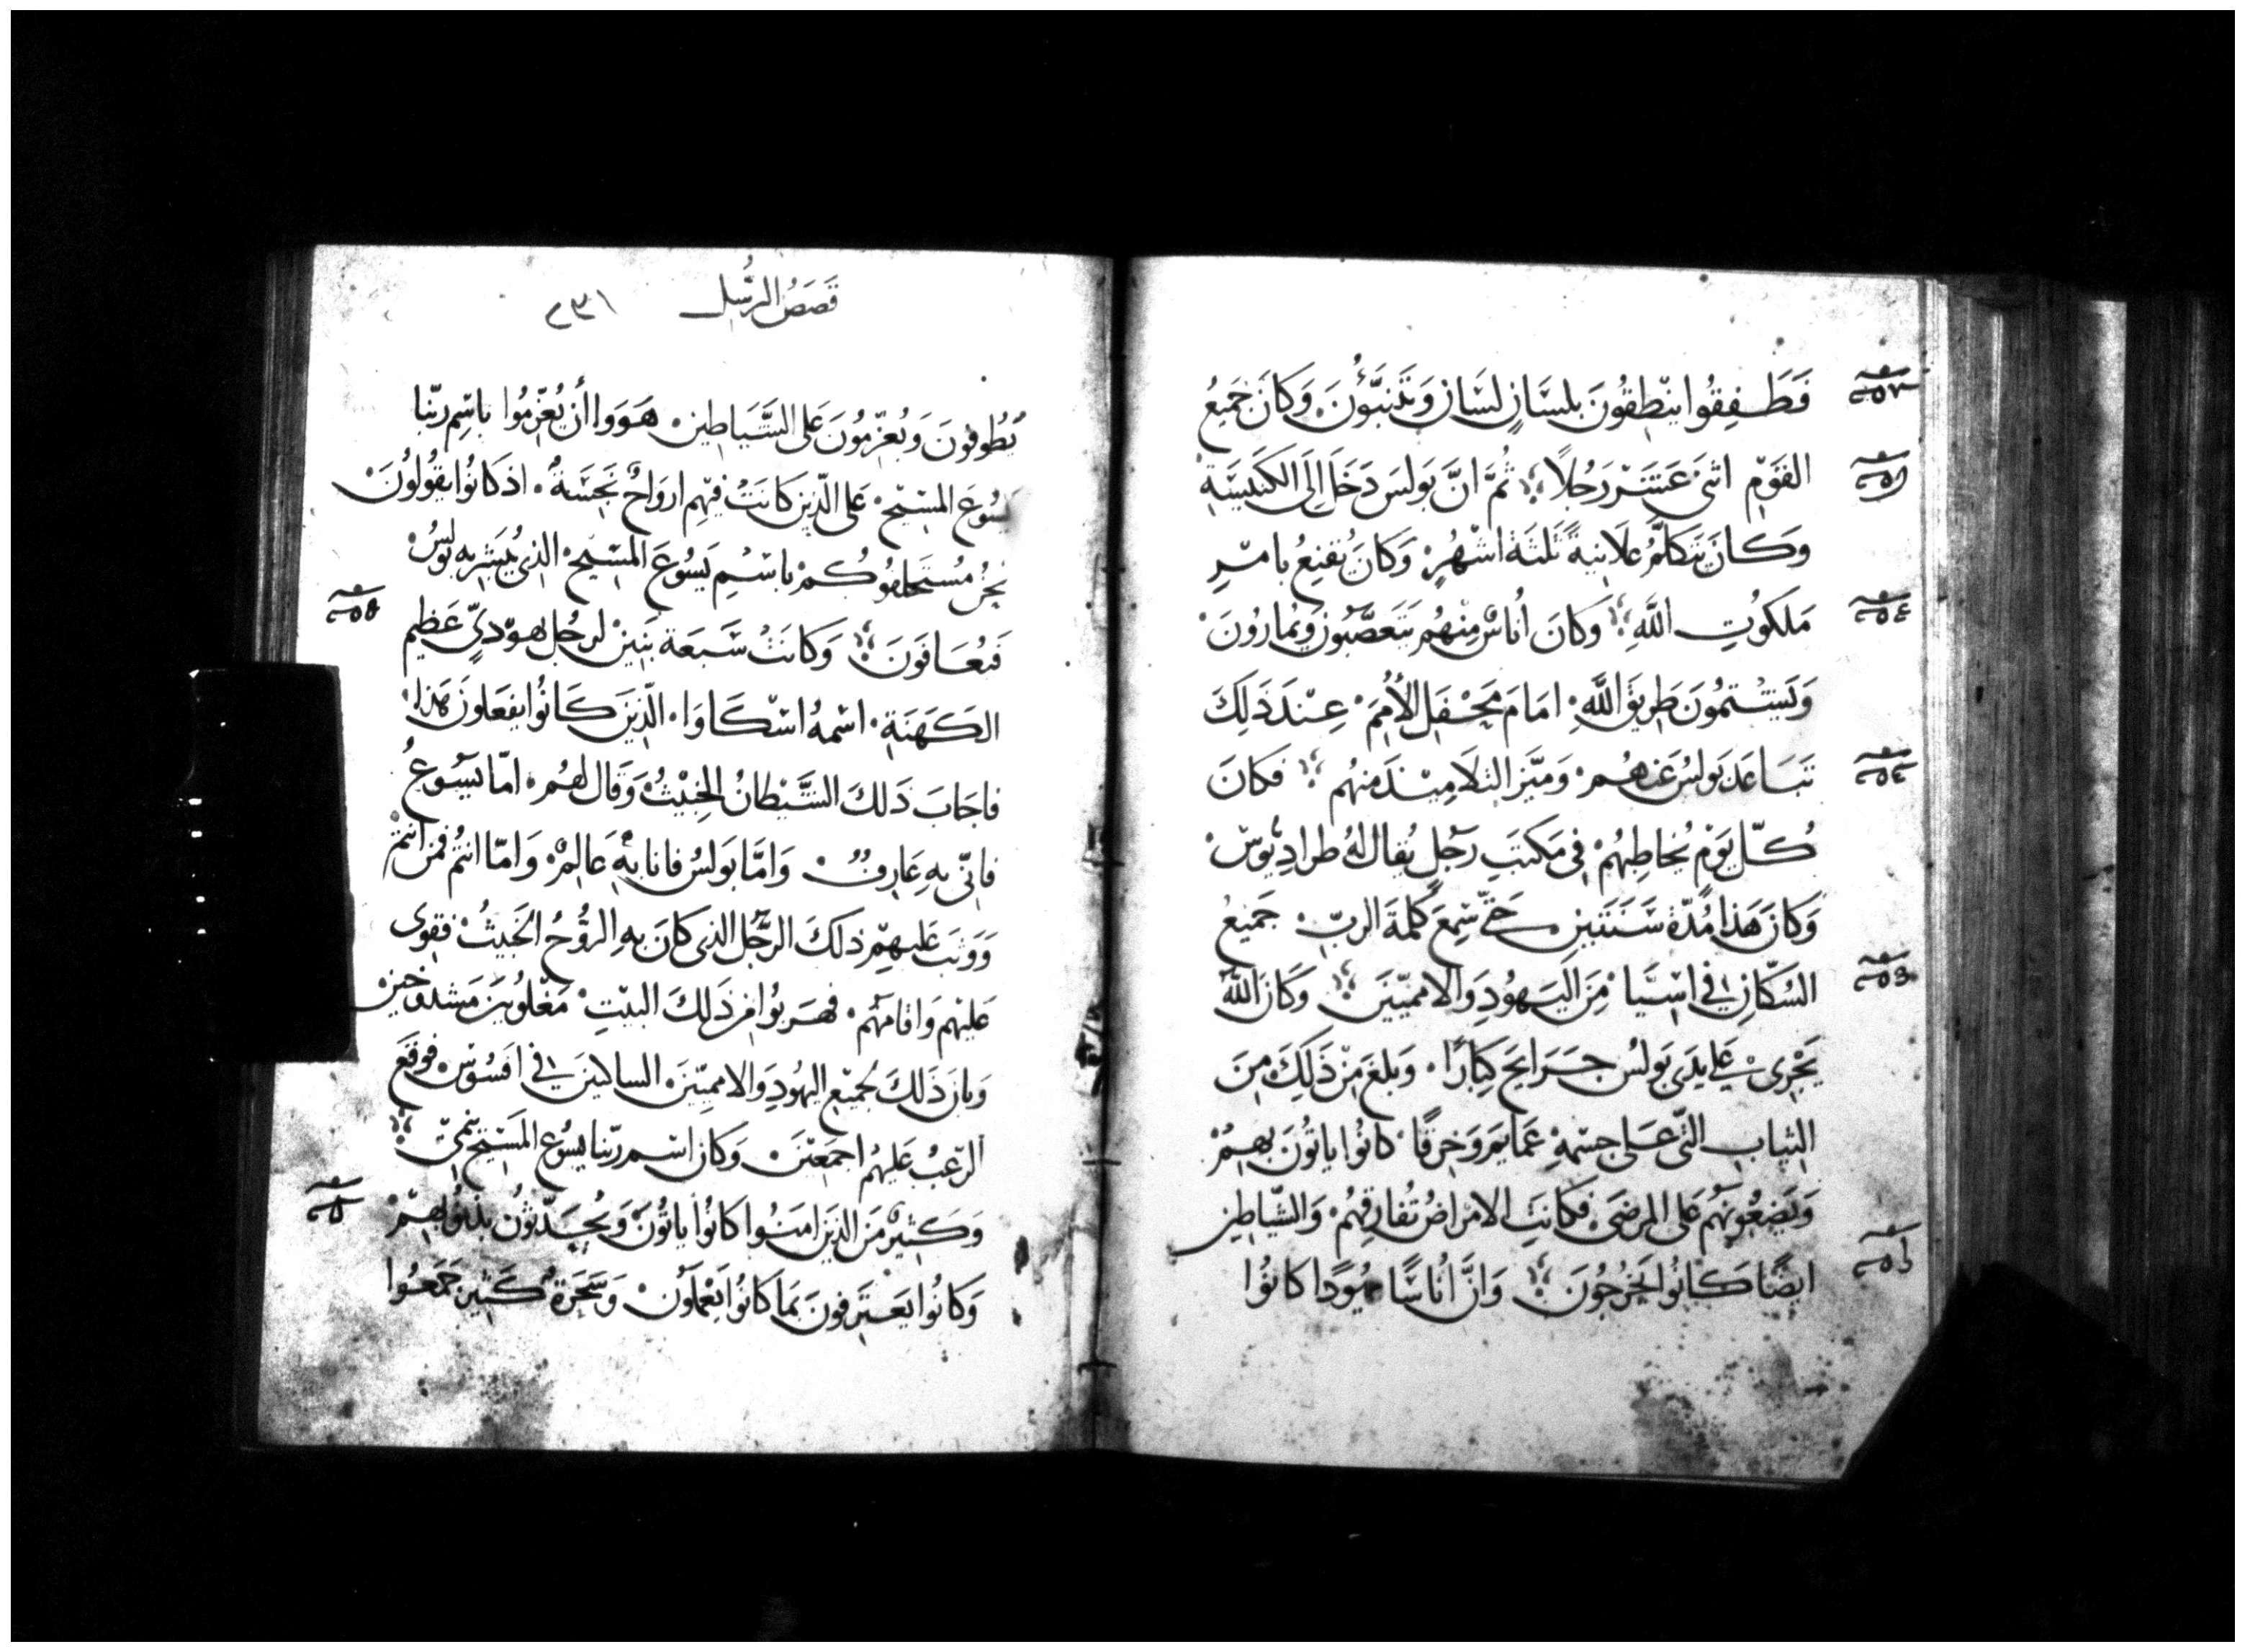 فَطَفِقُوا ينْطِقُونَ بلسَانٍ لسَانٍ وَيَتنَبَّؤُنَ وَكانَ جَمِيعُ
القَوْمِ اثنَى عَشَرَ رَجُلاً ثُمَّ انَّ بَولسَ دَخَلَ الِىَ الكَنيسَةِ
وَكانَ يَتكَلّمُ علاَنِيةً ثَلثَةَ اشْهُرٍ وَكانَ يُقنِعُ بامْرِ
مَلَكوُتِ اللَّهِ وَكانَ اُناسٌ مِنْهُم يَتَعَصّبُونَ وَيُمارُونَ
وَيَشتمُونَ طَرِيقَ اللَّهِ امَامَ مَحْفَلِ الأُمَمِ عِنْدَ ذَلِكَ
تبَاعَدَ بَولسُ عَنهُمْ وَمَيَّزَ التلاَمِيْذَ مِنهُم فَكانَ
كُلّ يَوْمٍ يُخاطِبهُمْ فِى مَكتَبِ رَجُلٍ يُقال لهُ طرادِيُوسْ
وَكانَ هَذا مُدّة سَنَتَينِ حَتّى سَمِعَ كَلمَةَ الربِّ جَميعُ
السُكّانِ فِي اسِيَا مِنَ اليَهُودِ وَالامَميّينَ وَكَانَ اللّهُ
يَجْرِى عَلى يَدَى بَولسُ جَرَايحَ كِبَارًا وَبلغَ مِنْ ذَلِكَ مِنَ
الثيابِ التّى عَلى جسْمِهِ عَمايمَ وَخِرَقًا كانُوا ياتُونَ بهِمُ
وَيَضعُونَهُم عَلى المرضَى فَكانَتِ الامرَاضُ تُفارِقهُمْ وَالشّياطِين
ايضًا كانُوا يَخرُجُونَ وَانَّ اُناسًا يَهُودًا كانُوا
قَصَصُ الرسُل ٢٣١
يَطُوفونَ وَيُعَزِّمُونَ عَلى الشَّيَاطِين هَوَوا أن يُعَزِّمُوا باسِم ربّنا
يَسُوعَ المسِيْحِ عَلى الّذِينَ كانَتْ فيْهِم ارواحٌ نَجِسَةٌ اذ كَانُوا يَقُولُونَ
نحْنُ مُستحَلفُوكُمْ باسْمِ يَسُوعَ المسِيْحِ الذِى يُبَشرُ بهِ بَولسُ
فَيُعَافَونَ وَكَانتْ سَبعَة بَنينْ لرجُل يهوْدىٍّ عَظِيم
الكَهَنَةِ اسْمهُ اسْكَاوَا الّذِينَ كَانُوا يَفعَلونَ هَذا
فاجَابَ ذَلكَ الشَّيْطانُ الخِبيْثُ وَقَال لهُم امّا يَسُوعُ
فانّى بهِ عَارِفٌ وَامَّا بَولسُ فانا بهِ عَالِمٌ وَامّا انتُم فَمَن انتمْ
وَوَثبَ عَليهِم ذلكَ الرجُل الذِى كانَ بهِ الروُّحُ الخَبِيثُ فقوِى
عَليْهم وَاقامَهُم فهَربُوا مِن ذَلكَ البيْتِ مَغْلوُبينَ مَشدُوخين
وَبان ذَلكَ لجَميْعِ اليهُودِ وَالامَميّينَ الساكنينَ فِي افَسُوسْ فوقعَ
الرّعبُ عَليهُم اجمَعيْنَ وَكان اسْم ربّنا يسُوعَ المسِيْحِ يَنمى
وَكثيرٌ مَن الذِينَ امَنوُا كانوُا ياتُونَ وَيُحَدّثوُن بذنوُبهِمْ
وَكانُوا يَعتَرِفونَ بمَا كَانُوا يَعْمَلُونَ وَسَحَرَةٌ كَثِيْر جَمَعُوا